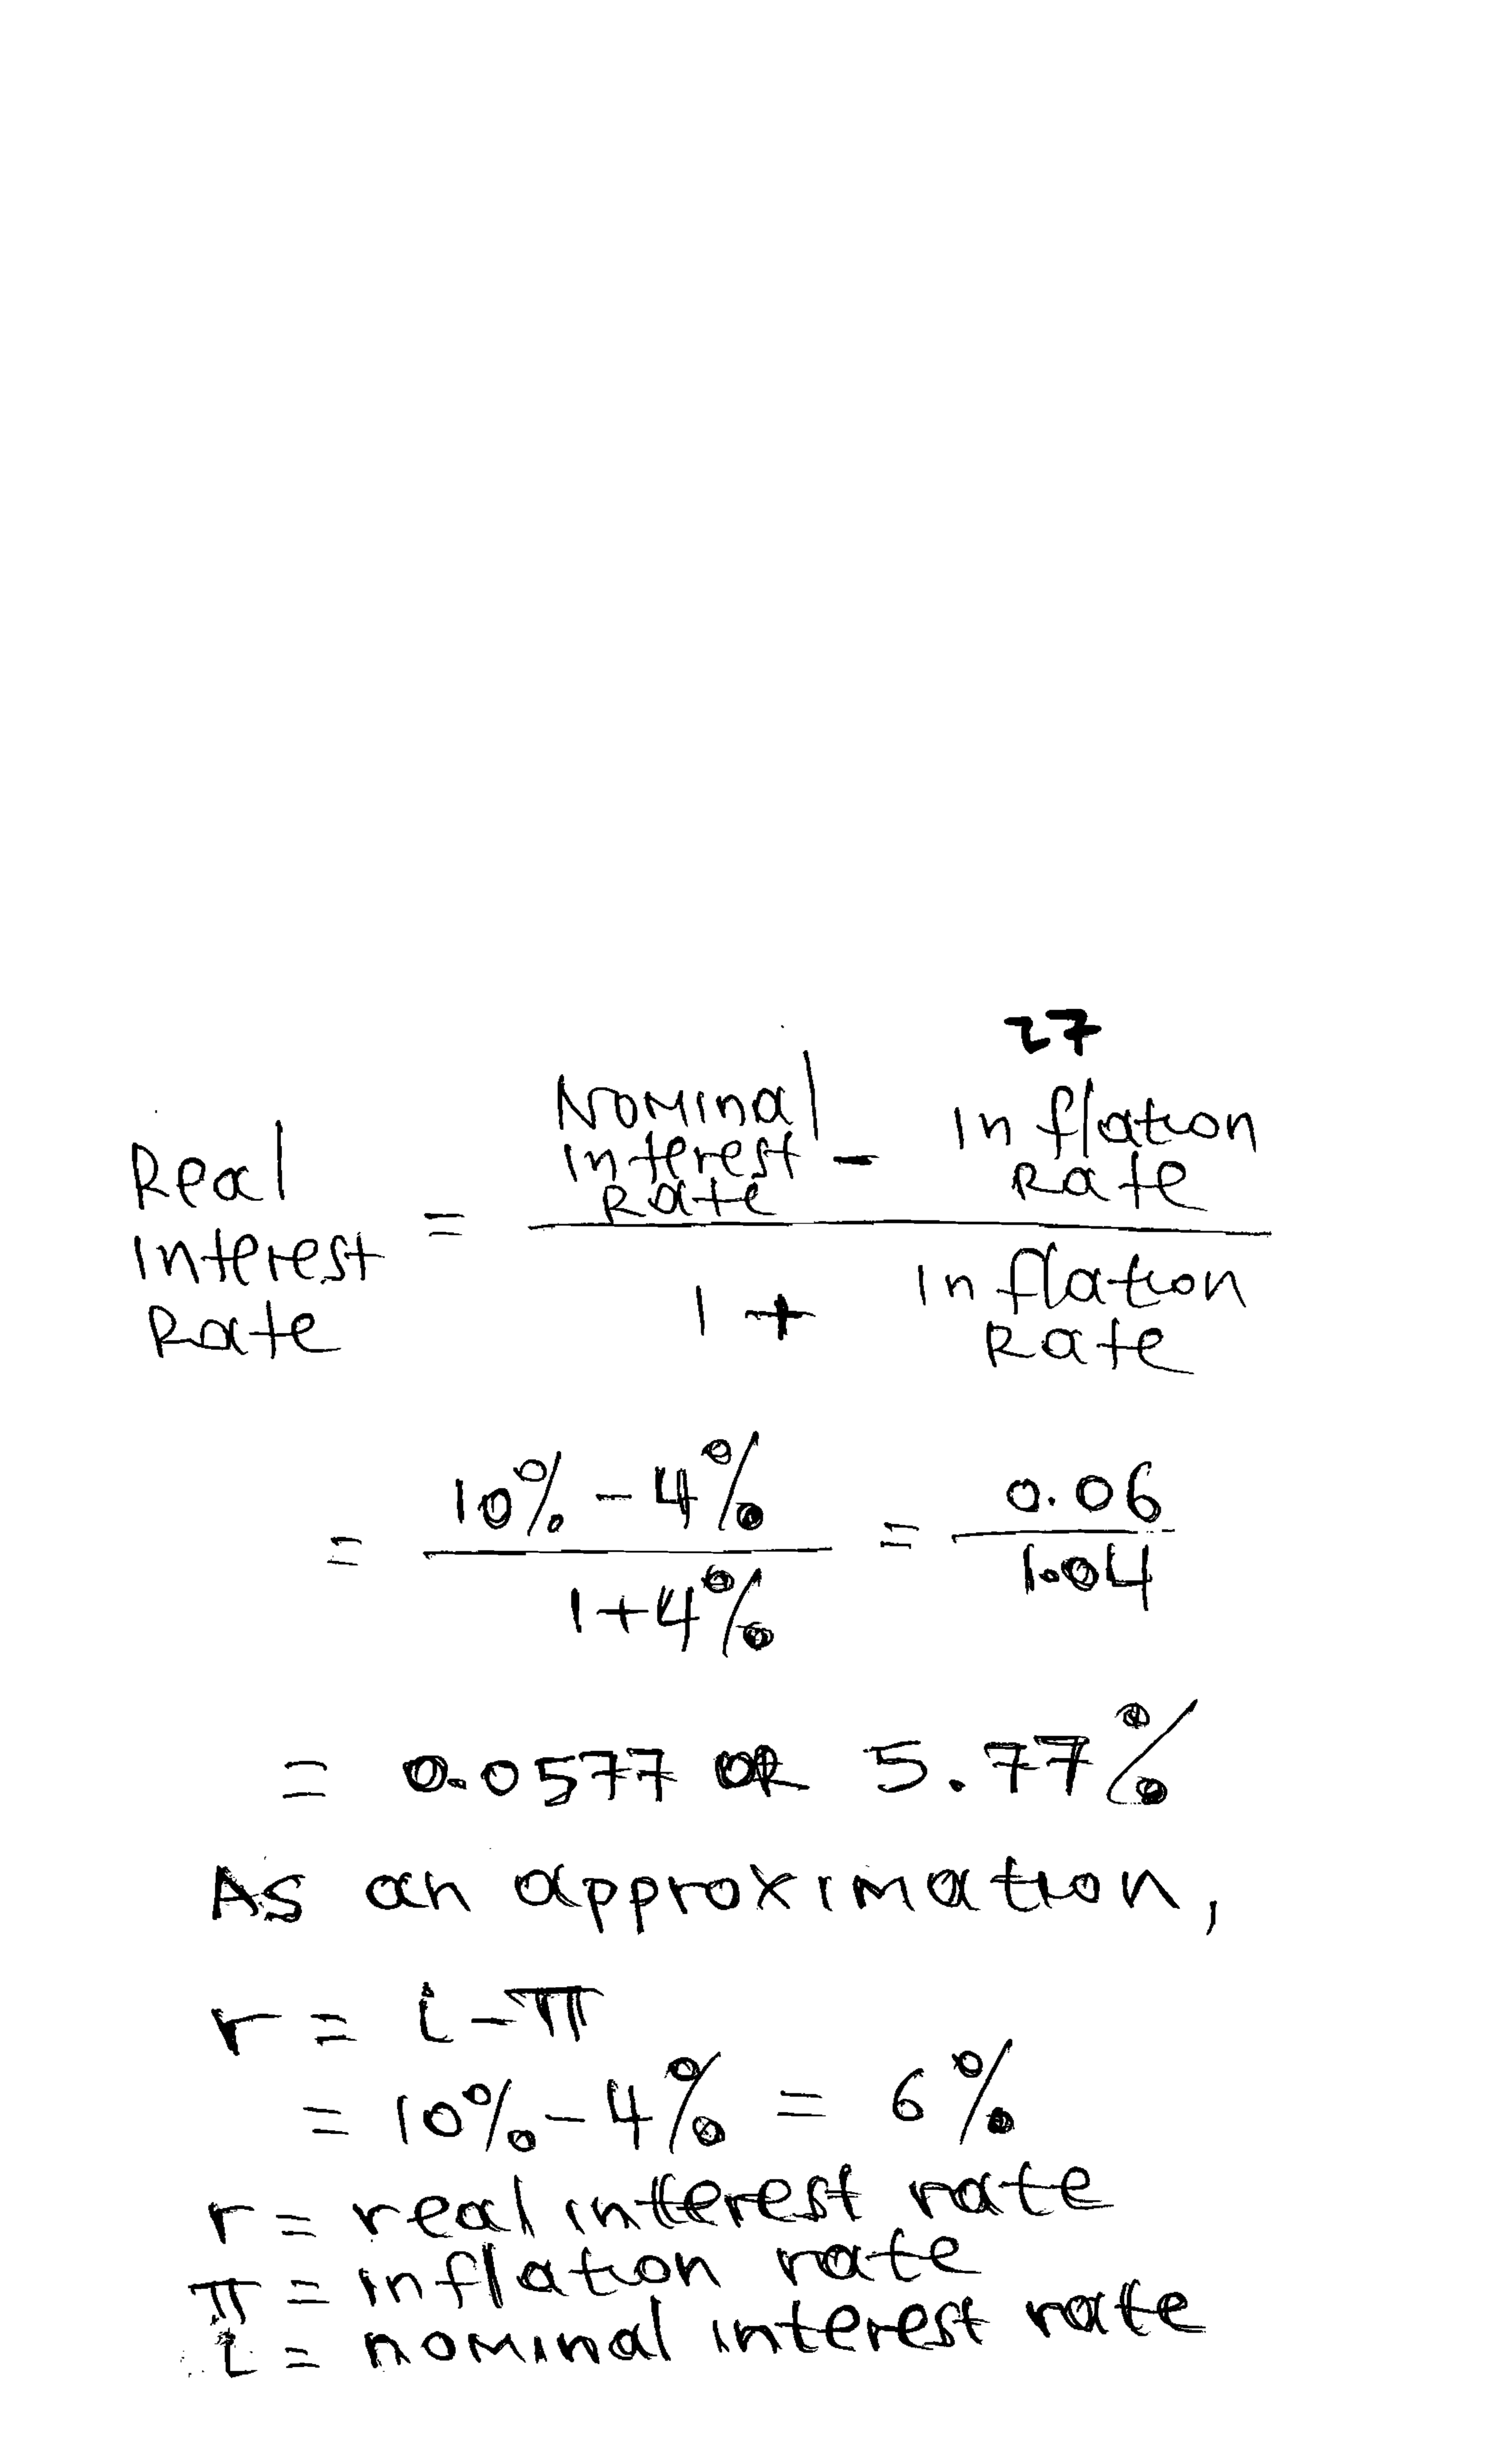 27
Real Interest Rate = (Nominal interest Rate - Inflation Rate) / (1 + Inflation Rate)
= (10% - 4%) / (1+4%) = 0.06 / 1.04
= 0.0577 OR 5.77%
As an approximation,
r = i - π
= 10% - 4% = 6%
r = real interest rate
π = inflation rate
i = nominal interest rate